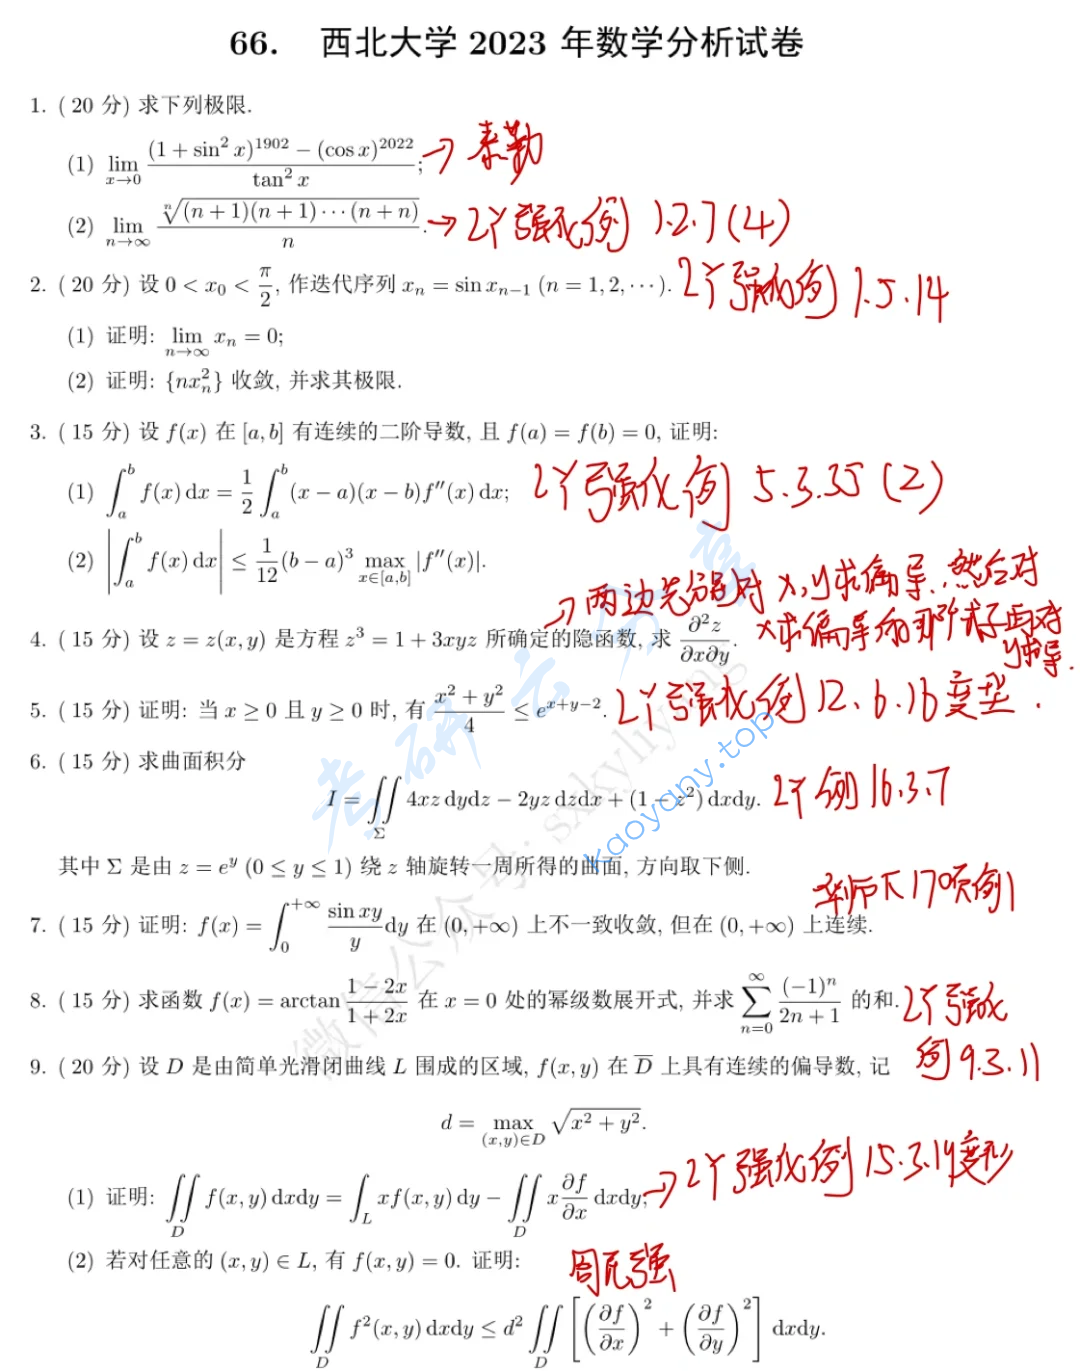 66. 西北大学 2023 年数学分析试卷
1. ( 20 分) 求下列极限.
(1) lim_{x→0} \frac{(1 + sin² x)^{1902} − (cos x)^{2022}}{tan² x}; → 泰勒
(2) lim_{n→∞} \frac{\sqrt[n]{(n + 1)(n + 1) · · · (n + n)}}{n}. → 2丫强化例 1.2.7(4)
2. ( 20 分) 设 0 < x₀ < \frac{π}{2}, 作迭代序列 xₙ = sin xₙ₋₁ (n = 1, 2, · · · ). 2丫强化例 1.5.14
(1) 证明: lim_{n→∞} xₙ = 0;
(2) 证明: {nxₙ²} 收敛, 并求其极限.
3. ( 15 分) 设 f(x) 在 [a, b] 有连续的二阶导数, 且 f(a) = f(b) = 0, 证明:
(1) ∫_a^b f(x) dx = \frac{1}{2} ∫_a^b (x − a)(x − b)f″(x) dx; 2丫强化例 5.3.35 (2)
(2) |∫_a^b f(x) dx| ≤ \frac{1}{12}(b − a)³ max_{x∈[a,b]} |f″(x)|.
→ 两边先分别对 x,y求偏导, 然后对
4. ( 15 分) 设 z = z(x, y) 是方程 z³ = 1 + 3xyz 所确定的隐函数, 求 \frac{∂²z}{∂x∂y}. x求偏导的那个式子再对
y求导.
5. ( 15 分) 证明: 当 x ≥ 0 且 y ≥ 0 时, 有 \frac{x² + y²}{4} ≤ e^{x+y−2}. 2丫强化例 12.6.16变型.
6. ( 15 分) 求曲面积分
I = ∬_Σ 4xz dydz − 2yz dzdx + (1 − z²) dxdy. 2丫例 16.3.7
其中 Σ 是由 z = e^y (0 ≤ y ≤ 1) 绕 z 轴旋转一周所得的曲面, 方向取下侧.
华师下170页例1
7. ( 15 分) 证明: f(x) = ∫_0^{+∞} \frac{sin xy}{y} dy 在 (0, +∞) 上不一致收敛, 但在 (0, +∞) 上连续.
8. ( 15 分) 求函数 f(x) = arctan \frac{1 − 2x}{1 + 2x} 在 x = 0 处的幂级数展开式, 并求 ∑_{n=0}^{∞} \frac{(−1)^n}{2n + 1} 的和. 2丫强化
例9.3.11
9. ( 20 分) 设 D 是由简单光滑闭曲线 L 围成的区域, f(x, y) 在 \overline{D} 上具有连续的偏导数, 记
d = max_{(x,y)∈D} \sqrt{x² + y²}.
(1) 证明: ∬_D f(x, y) dxdy = ∫_L xf(x, y) dy − ∬_D x \frac{∂f}{∂x} dxdy; → 2丫强化例 15.3.19变形
(2) 若对任意的 (x, y) ∈ L, 有 f(x, y) = 0. 证明:
∬_D f²(x, y) dxdy ≤ d² ∬_D [(\frac{∂f}{∂x})² + (\frac{∂f}{∂y})²] dxdy.
考研云分享
kaoyany.top
微信公众号: sxkyliyng